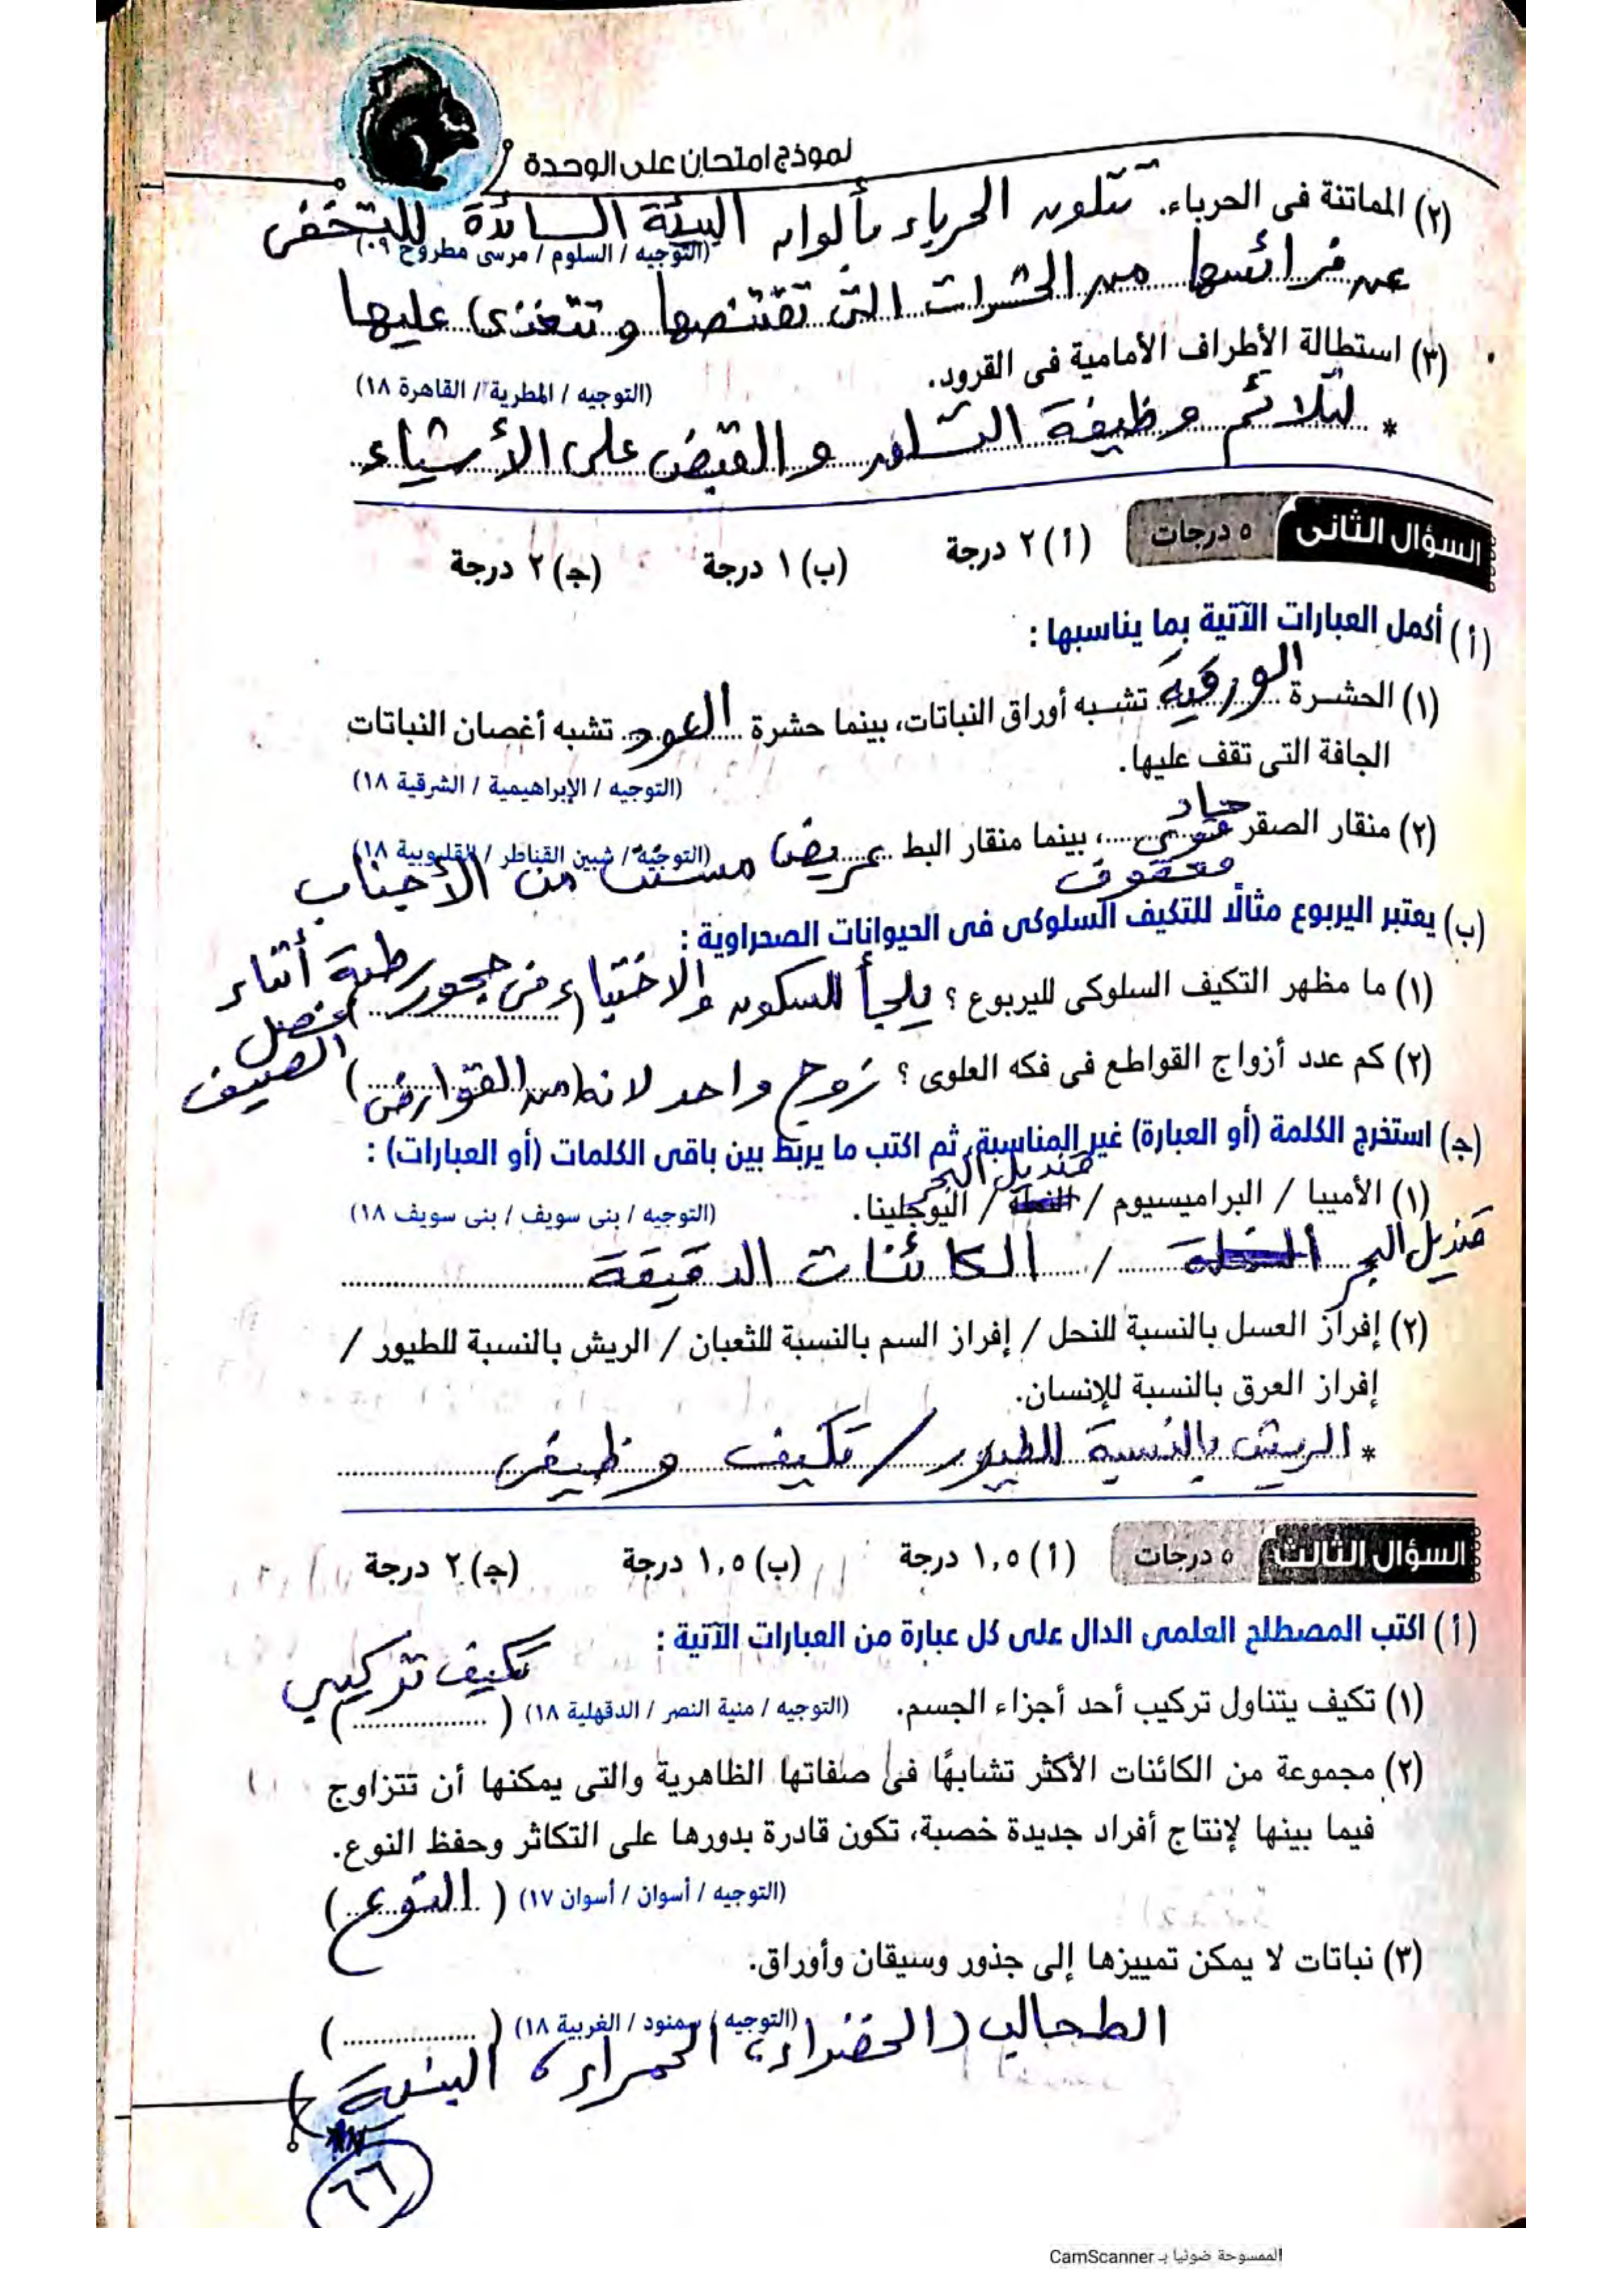 نموذج امتحان على الوحدة
(٢) المماتنة فى الحرباء. تتلون الحرباء بألوان البيئة السائدة للتخفى
(التوجيه / السلوم / مرسى مطروح ٠٩)
عن فرائسها من الحشرات التى تقتنصها و تتغذى عليها
(٣) استطالة الأطراف الأمامية فى القرود.
(التوجيه / المطرية / القاهرة ١٨)
* لتلائم وظيفة التسلق و القبض على الأشياء
السؤال الثانى ٥ درجات (أ) ٢ درجة (ب) ١ درجة (جـ) ٢ درجة
(أ) أكمل العبارات الآتية بما يناسبها :
(١) الحشرة الورقية تشبه أوراق النباتات، بينما حشرة العود تشبه أغصان النباتات
الجافة التى تقف عليها.
(التوجيه / الإبراهيمية / الشرقية ١٨)
(٢) منقار الصقر حاد قوى معقوف، بينما منقار البط عريض مسنن من الأجناب
(التوجيه / شبين القناطر / القليوبية ١٨)
(ب) يعتبر اليربوع مثالًا للتكيف السلوكى فى الحيوانات الصحراوية :
(١) ما مظهر التكيف السلوكى لليربوع ؟ يلجأ للسكون والاختباء فى جحور رطبة أثناء
فصل الصيف
(٢) كم عدد أزواج القواطع فى فكه العلوى ؟ زوج واحد لانه من القوارض
(جـ) استخرج الكلمة (أو العبارة) غير المناسبة، ثم اكتب ما يربط بين باقى الكلمات (أو العبارات) :
قنديل البحر
(١) الأميبا / البراميسيوم / النملة / اليوجلينا.
(التوجيه / بنى سويف / بنى سويف ١٨)
قنديل البحر / الكائنات الدقيقة
(٢) إفراز العسل بالنسبة للنحل / إفراز السم بالنسبة للثعبان / الريش بالنسبة للطيور /
إفراز العرق بالنسبة للإنسان.
* الريش بالنسبة للطيور / تكيف وظيفى
السؤال الثالث ٥ درجات (أ) ١,٥ درجة (ب) ١,٥ درجة (جـ) ٢ درجة
(أ) اكتب المصطلح العلمى الدال على كل عبارة من العبارات الآتية :
تكيف تركيبي
(١) تكيف يتناول تركيب أحد أجزاء الجسم. (التوجيه / منية النصر / الدقهلية ١٨) (..................)
(٢) مجموعة من الكائنات الأكثر تشابهًا فى صفاتها الظاهرية والتى يمكنها أن تتزاوج
فيما بينها لإنتاج أفراد جديدة خصبة، تكون قادرة بدورها على التكاثر وحفظ النوع.
(التوجيه / أسوان / أسوان ١٧) (النوع)
(٣) نباتات لا يمكن تمييزها إلى جذور وسيقان وأوراق.
(التوجيه / سمنود / الغربية ١٨) (..................)
الطحالب (الخضراء، الحمراء، البنية)
٦٦
الممسوحة ضوئيا بـ CamScanner